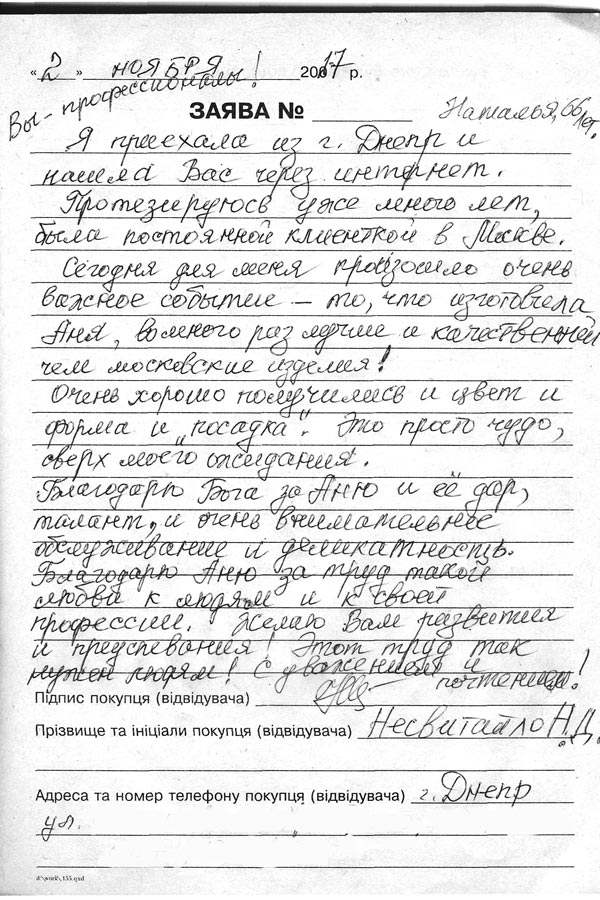 « 2 » ноября 2017 р.
Вы - профессионалы!
ЗАЯВА №
Наталья, 66 лет.
Я приехала из г. Днепр и
нашла Вас через интернет.
Протезируюсь уже много лет,
была постоянной клиенткой в Москве.
Сегодня для меня произошло очень
важное событие – то, что изготовила
Аня, во много раз лучше и качественней
чем московские изделия!
Очень хорошо получились и цвет и
форма и „посадка". Это просто чудо,
сверх моего ожидания.
Благодарю Бога за Аню и её дар,
талант, и очень внимательное
обслуживание и деликатность.
Благодарю Аню за труд такой
любви к людям и к своей
профессии. Желаю Вам развития
и преуспевания! Этот труд так
нужен людям! С уважением и
почтением!
Підпис покупця (відвідувача)
Прізвище та ініціали покупця (відвідувача) Несвитайло Н.Д.
Адреса та номер телефону покупця (відвідувача) г. Днепр
ул.
d:\work\_155.qxd